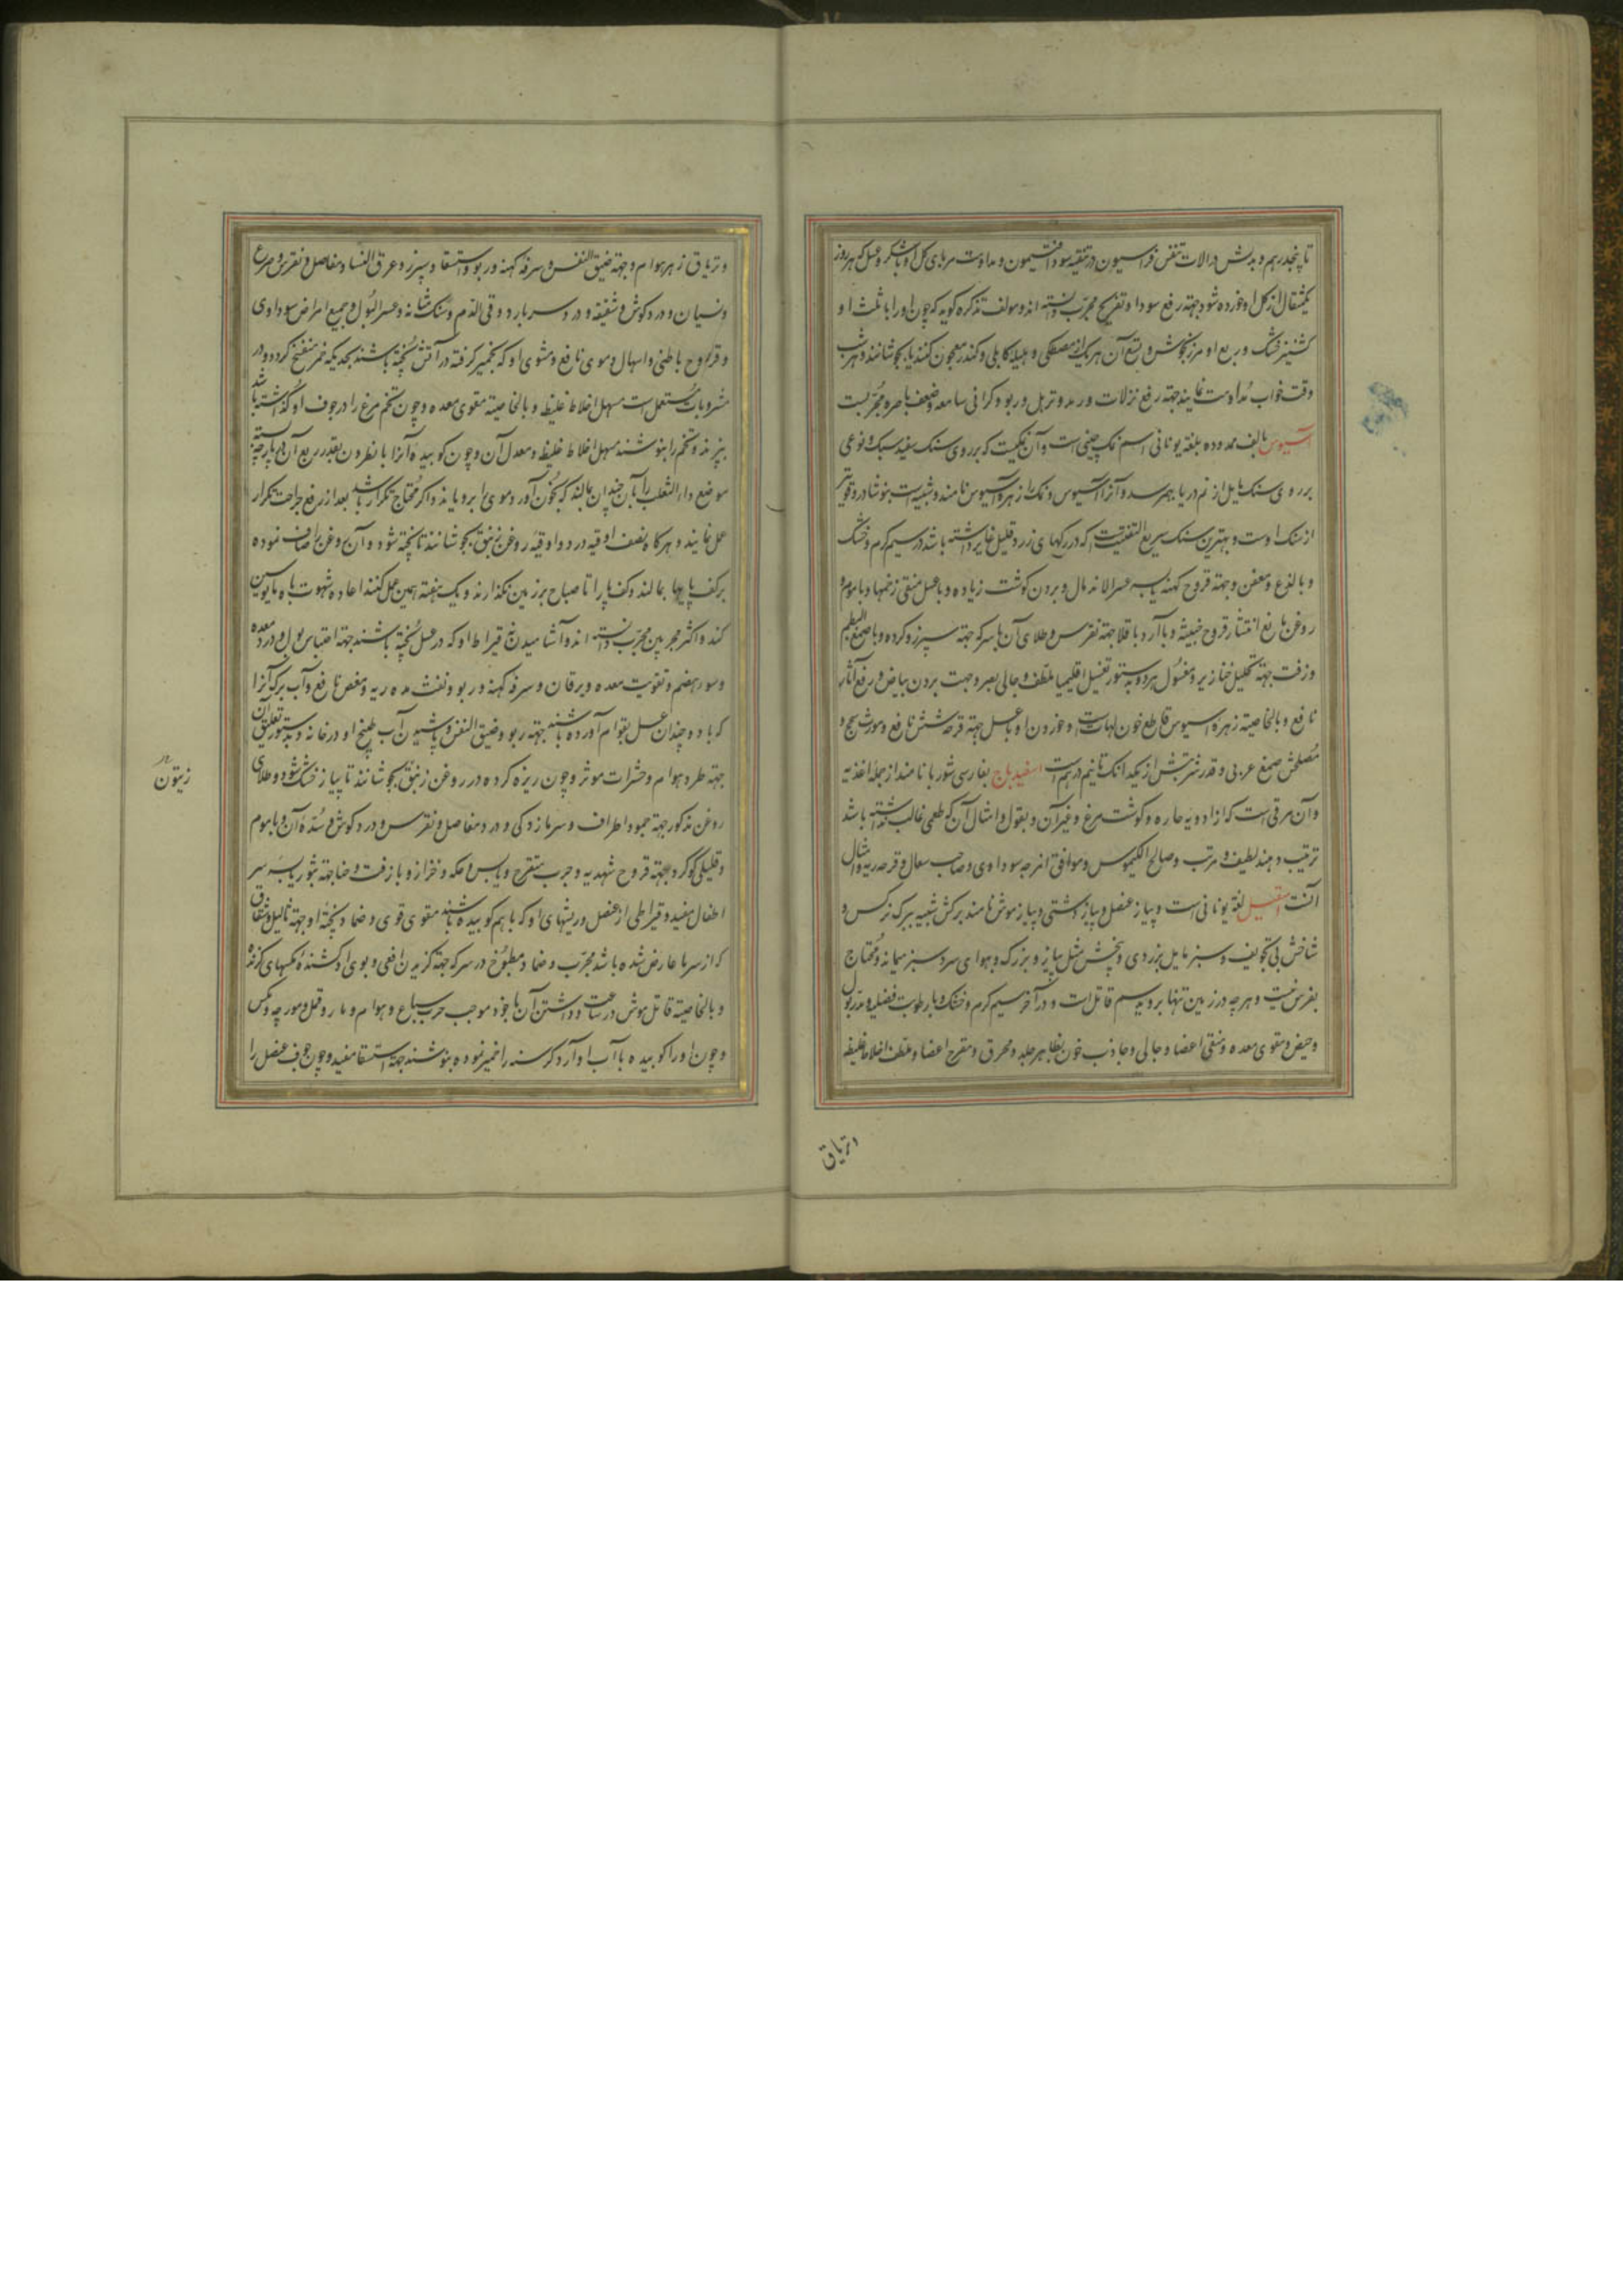 تا پنجدرهم و بدلش در الات تنفس فراسیون و در تنقیه سودا افتیمون و مداومت مربای کل او با شکر و عسل که هر روز
یکمثقال از کل او خورده شود جهته رفع سودا و تفریح مجرب دانسته اند و مولف تذکره کوید که چون او را با ثلث او
کشنیز خشک و ربع او مرزنجوش و تسع آن هر یک از مصطکی و هلیله کابلی و کندر معجون کنند یا بجوشانند و هر شب
وقت خواب مداومت نمایند جهته رفع نزلات و رمد و ترهل و ربو و کرانی سامعه و ضعف باصره مجربست
آسیوس بالف ممدوده بلغة یونانی اسم نمک چینی است و آن نمکیست که بر روی سنک سفید سبک و نوعی
بر روی سنک مایل از نم دریا بهم رسد و آنرا آسیوس و نمک را زهره آسیوس نامند و شبیه است بنوشادر و قویتر
از سنک اوست و بهترین سنک سریع التفتت است که در رکهای زرد قلیل غایر داشته باشد در سیم کرم و خشک
و با لذع و معفن و جهته قروح کهنه یابسه عسر الاندمال و بردن کوشت زیاده و با عسل منقی زخمها و با موم و
روغن مانع انتشار قروح خبیثه و با آرد باقلا جهته نقرس و طلای آن با سرکه جهته سپرز و کرده و با صمغ البطم
و زفت جهته تحلیل خنازیر و مغسول هر دو بدستور تغسیل اقلیمیا ملطف و جالی بصر و جهت بردن بیاض و رفع آثار
نافع و بالخاصیته زهره اسیوس قاطع خون لهات است و خوردن او با عسل جهته قرحه شش نافع و مورث سحج و
مصلحش صمغ عربی و قدر شربتش از یکدانک تا نیم درهم است اسفیدباج بفارسی شوربا نامند از جمله اغذیه
و آن مرقی است که از ادویه حاره و کوشت مرغ و غیر آن و بقول و امثال آن که طعمی غالب نداشته باشد
ترتیب دهند لطیف و مرتب و صالح الکیموس و موافق امزجه سوداوی و صاحب سعال و قرحه ریه و امثال
آنست اسقیل لغة یونانی است و پیاز عنصل و پیاز دشتی و پیاز موش نامند برکش شبیه ببرک نرکس و
شاخش بی تجویف و سبز مایل بزردی و بیخش مثل پیاز و بزرک و بهوای سرد سبز میماند و محتاج
بغرس نیست و هر چه در زمین تنها بروید سم قاتل است و در آخر سیم کرم و خشک و با رطوبت فضلیه و مدر بول
و حیض و مقوی معده و منقی اعضا و جالی و جاذب خون بظاهر جلد و محرق و مقرح اعضا و ملطف اخلاط غلیظه
و تریاق
و تریاق زهر هوام و جهته ضیق النفس و سرفه کهنه و ربو و استسقا و سپرز و عرق النسا و مفاصل و نقرس و صرع
و نسیان و درد کوش و شقیقه و درد سر بارد و قی الدم و سنک مثانه و عسر البول و جمیع امراض سوداوی
و قروح باطنی و اسهال دموی نافع و مشوی او که بخمیر کرفته در آتش پخته باشند بحدیکه خمیر منضج کردد و در
مشروبات مستعمل است مسهل اخلاط غلیظه و بالخاصیته مقوی معده و چون تخم مرغ را در جوف او کذاشته باشد
بپزند و تخم را بنوشند مسهل اخلاط غلیظه و معدل آن و چون کوبیده آنرا با نطرون بقدر ربع آن در پارچه بسته
موضع داء الثعلب را بآن چندان بمالند که بخون آورد موی را برویاند و اکر محتاج تکرار باشد بعد از رفع جراحت تکرار
عمل نمایند و هرکاه نصف اوقیه در دو اوقیه روغن زنبق بجوشانند تا پخته شود و آن روغن را صاف نموده
بر کف پایها بمالند و کف پا را تا صباح بر زمین نکذارند و یک هفته همین عمل کنند اعاده شهوت باه مایوسین
کند و اکثر مجربین مجرب دانسته اند و آشامیدن سه قیراط او که در عسل پخته باشند جهته احتباس بول و درد معده
و سوء هضم و تقویت معده و یرقان و سرفه کهنه و ربو و نفث مده ریه و مغص نافع و آب برک آنرا
که با دو چندان عسل بقوام آورده باشند جهته ربو و ضیق النفس و پاشیدن آب طبیخ او در خانه و بدستور تعلیق آن
جهته طرد هوام و حشرات موثر و چون ریزه کرده در روغن زنبق بجوشانند تا پیاز خشک شود و طلای
روغن مذکور جهته جمود اطراف و سرمازدکی و درد مفاصل و نقرس و درد کوش و سده آن و با موم
و قلیلی کوکرد جهته قروح شهدیه و جرب متقرح و یابس و حکه و خزاز و با زفت و حنا جهته بثور یابسه سر
اطفال مفید و قیراطی از عنصل و ریشهای او که با هم کوبیده باشند مقوی قوی و ضماد پخته او جهته ثالیل و شقاق
که از سرما عارض شده باشد مجرب و ضماد مطبوخ در سرکه جهته کزیدن افعی و بوی او کشنده مکسهای کزنده
و بالخاصیته قاتل موش در ساعت و داشتن آن با خود موجب هرب سباع و هوام و مار و قمل و مورچه و مکس
و چون او را کوبیده با آب او آرد کرسنه را خمیر نموده بنوشند جهته استسقا مفید و چون جوف عنصل را
زیتون